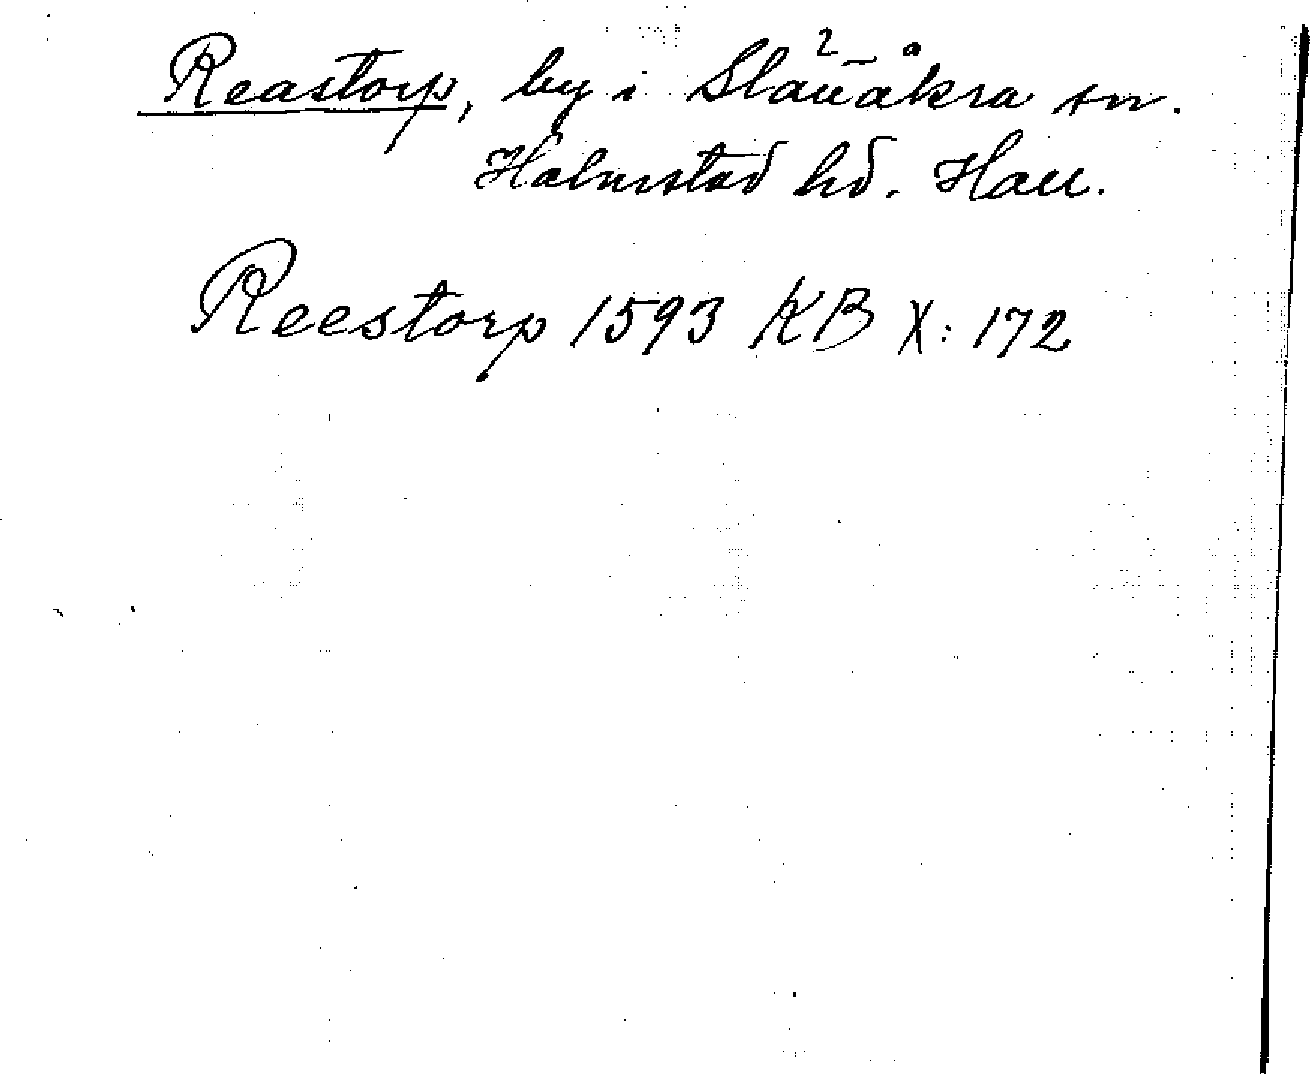 Reastorp, by i Slättåkra sn.
Halmstad hd. Hall.
Reestorp 1593 KB X: 172